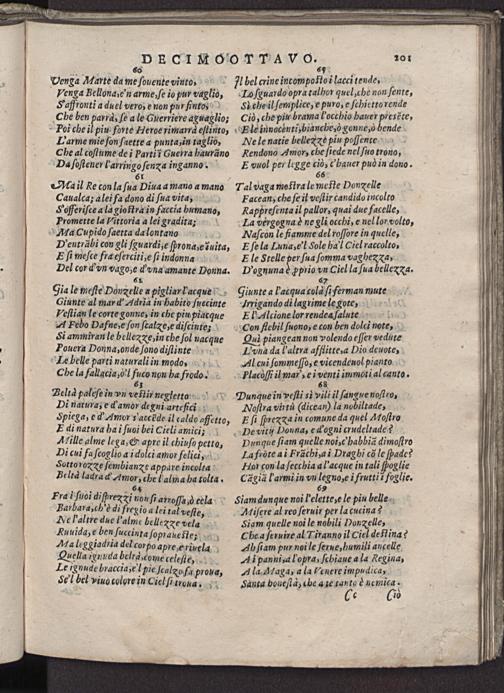 DECIMOOTTAVO. 201
60
Venga Marte da me souente vinto,
Venga Bellona, e'n arme, se io pur vaglio,
S'affronti a duel vero, e non pur finto,
Che ben parrà, se a le Guerriere aguaglio;
Poi che il piu forte Heroe rimarrà estinto,
L'arme mie son saette a punta, in taglio,
Che al costume de i Parti i Guerra hauràno
Da sostener l'arringo senza inganno.
61
Ma il Re con la sua Diua a mano a mano
Caualca; a lei fa dono di sua vita,
S'offerisce a la giostra in faccia humano,
Promette la Vittoria a lei gradita;
Ma Cupido saetta da lontano
D'entrābi con gli sguardi, e sprona, e'nuita,
E si mesce fra eserciti, e si indonna
Del cor d'vn vago, e d'vna amante Donna.
62
Gia le meste Donzelle a pigliar l'acque
Giunte al mar d'Adria in habito succinte
Vestian le corte gonne, in che piu piacque
A Febo Dafne, e son scalze, e discinte;
Si ammiran le bellezze, in che sol nacque
Pouera Donna, onde sono distinte
Le belle parti naturali in modo,
Che la fallacia, o'l fuco non ha frodo.
63
Beltà palese in vn vestir negletto
Di natura, e d'amor degni artefici
Spiega, e d'Amor s'accēde il caldo affetto,
E di natura ha i suoi bei Cieli amici;
Mille alme lega, & apre il chiuso petto,
Di cui fa scoglio a i dolci amor felici,
Sotto rozze sembianze appare incolta
Beltà ladra d'Amor, che l'alma ha tolta.
64
Fra i suoi disprezzi non si arrossa, ò cela
Barbara, ch'è di fregio a lei tal veste,
Ne l'altre due l'alme bellezze vela
Ruuida, e ben succinta soprauesta;
Ma leggiadria del corpo apre, e riuela
Quella ignuda beltà, come celeste,
Le ignude braccia, e'l pie scalzo fa proua,
Se'l bel viuo colore in Ciel si troua.
65
Il bel crine incomposto i lacci tende,
Lo sguardo opra talhor quel, che non sente,
Sì che il semplice, e puro, e schietto rende
Ciò, che piu brama l'occhio hauer presēte,
E le innocenti, bianche, ò gonne, ò bende
Ne le natie bellezze piu possente
Rendono Amor, che siede nel suo trono,
E vuol per legge ciò, c'hauer può in dono.
66
Tal vaga mostra le meste Donzelle
Facean, che se il vestir candido incolto
Rappresenta il pallor, quai due facelle,
La vergogna è ne gli occhi, e nel lor volto,
Nascon le fiamme del rossore in quelle,
E se la Luna, e'l Sole ha'l Ciel raccolto,
E le Stelle per sua somma vaghezza,
D'ognuna è pprio vn Ciel la sua bellezza.
67
Giunte a l'acqua colà si ferman mute
Irrigando di lagrime le gote,
E l'Alcione lor rendea salute
Con flebil suono, e con ben dolci note,
Quì piangean non volendo esser vedute
L'vna da l'altra afflitte, a Dio deuote,
Al cui sommesso, e vicendeuol pianto
Placossi il mar', e i venti immoti al canto.
68
Dunque in vesti sì vili il sangue nostro,
Nostra virtù (dicean) la nobiltade,
E si sprezza in comune da quel Mostro
De vitij Donna, e d'ogni crudeltade?
Dunque siam quelle noi, c'habbiā dimostro
La frōte a i Frāchi, a i Draghi cō le spade?
Hor con la secchia a l'acque in tali spoglie
Cāgia l'armi in vn legno, e i frutti i foglie.
69
Siam dunque noi l'elette, e le piu belle
Misere al reo seruir per la cucina?
Siam quelle noi le nobili Donzelle,
Che a seruire al Tiranno il Ciel destina?
Ah siam pur noi le serue, humili ancelle
A i panni, a l'opra, schiaue a la Regina,
A la Maga, a la Venere impudica,
Santa honestà, che a te tanto è nemica.
Cc Ciò